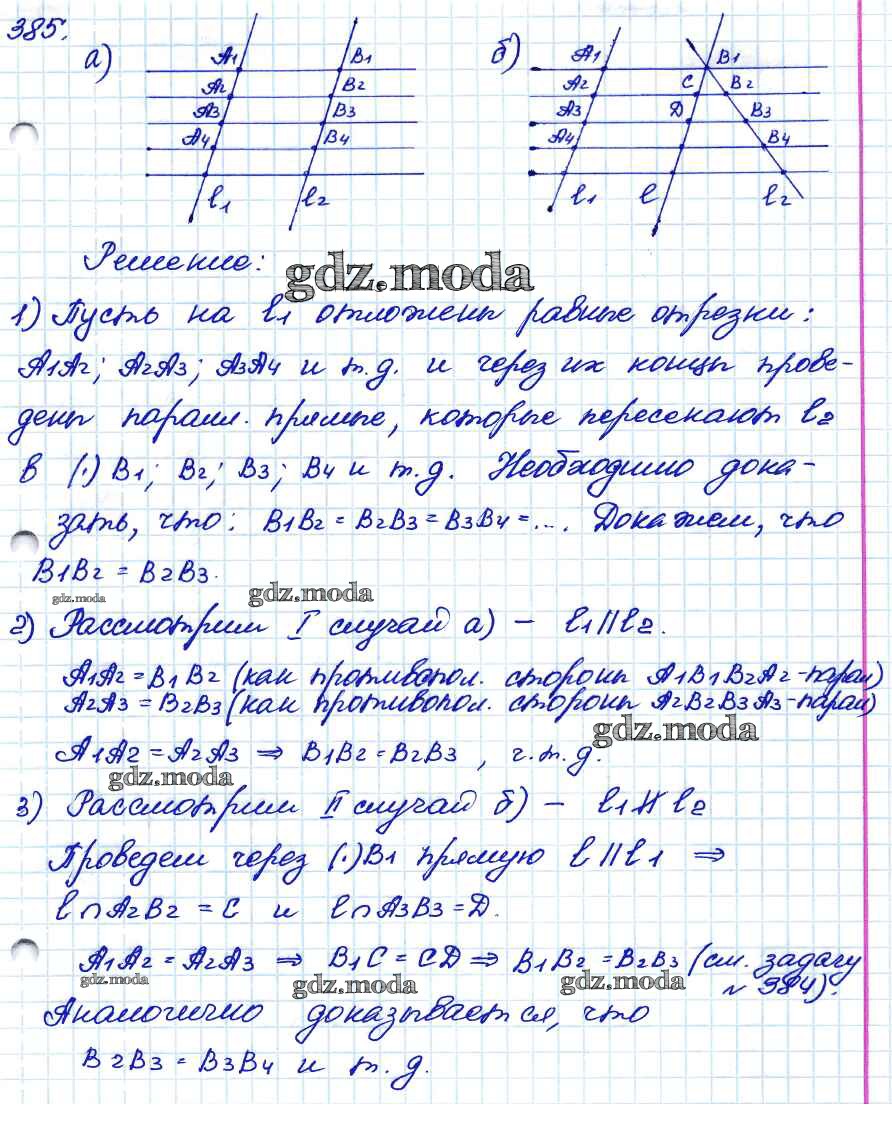 385.
а)
A1 B1
A2 B2
A3 B3
A4 B4
l1 l2
б)
A1 B1
A2 C B2
A3 D B3
A4 B4
l1 l l2
Решение:
gdz.moda
1) Пусть на l1 отложены равные отрезки:
A1A2; A2A3; A3A4 и т.д. и через их концы прове-
дены паралл. прямые, которые пересекают l2
в (·) B1; B2; B3; B4 и т.д. Необходимо дока-
зать, что: B1B2 = B2B3 = B3B4 = .... Докажем, что
B1B2 = B2B3.
gdz.moda gdz.moda
2) Рассмотрим I случай а) – l1 || l2.
A1A2 = B1B2 (как противопол. стороны A1B1B2A2-парал)
A2A3 = B2B3 (как противопол. стороны A2B2B3A3-парал)
gdz.moda
A1A2 = A2A3 ⇒ B1B2 = B2B3 , ч.т.д.
gdz.moda
3) Рассмотрим II случай б) – l1 ∦ l2
Проведем через (·) B1 прямую l || l1 ⇒
l ∩ A2B2 = C и l ∩ A3B3 = D.
A1A2 = A2A3 ⇒ B1C = CD ⇒ B1B2 = B2B3 (см. задачу
№ 384).
gdz.moda gdz.moda gdz.moda
Аналогично доказывается, что
B2B3 = B3B4 и т.д.